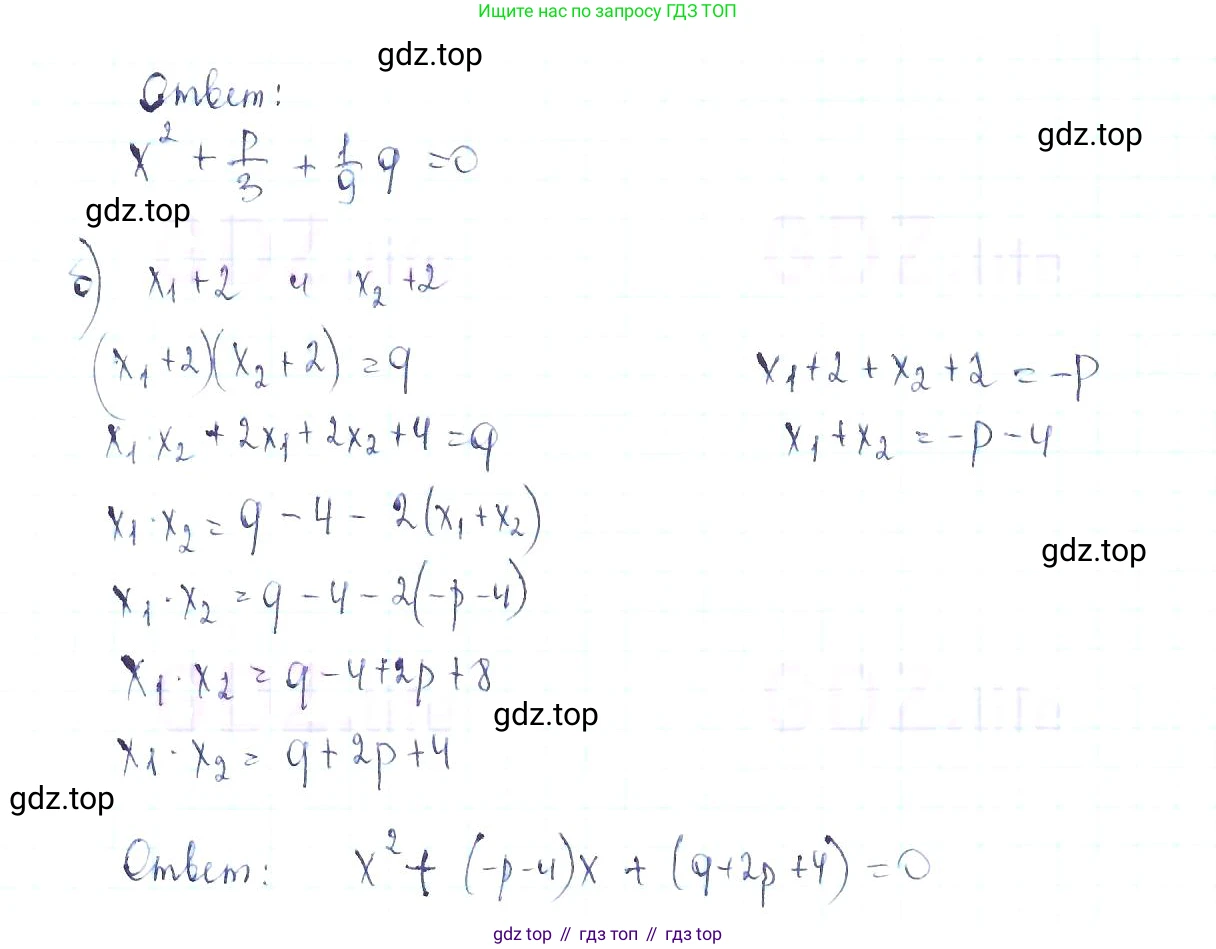 Ищите нас по запросу ГДЗ ТОП
gdz.top
Ответ:
gdz.top
x² + p/3 + 1/9 q = 0
gdz.top
б) x₁ + 2 и x₂ + 2
(x₁ + 2)(x₂ + 2) = q
x₁ + 2 + x₂ + 2 = -p
x₁ · x₂ + 2x₁ + 2x₂ + 4 = q
x₁ + x₂ = -p - 4
x₁ · x₂ = q - 4 - 2(x₁ + x₂)
gdz.top
x₁ · x₂ = q - 4 - 2(-p - 4)
x₁ · x₂ = q - 4 + 2p + 8
gdz.top
x₁ · x₂ = q + 2p + 4
gdz.top
Ответ: x² + (-p-4)x + (q+2p+4) = 0
gdz top // гдз топ // gdz top